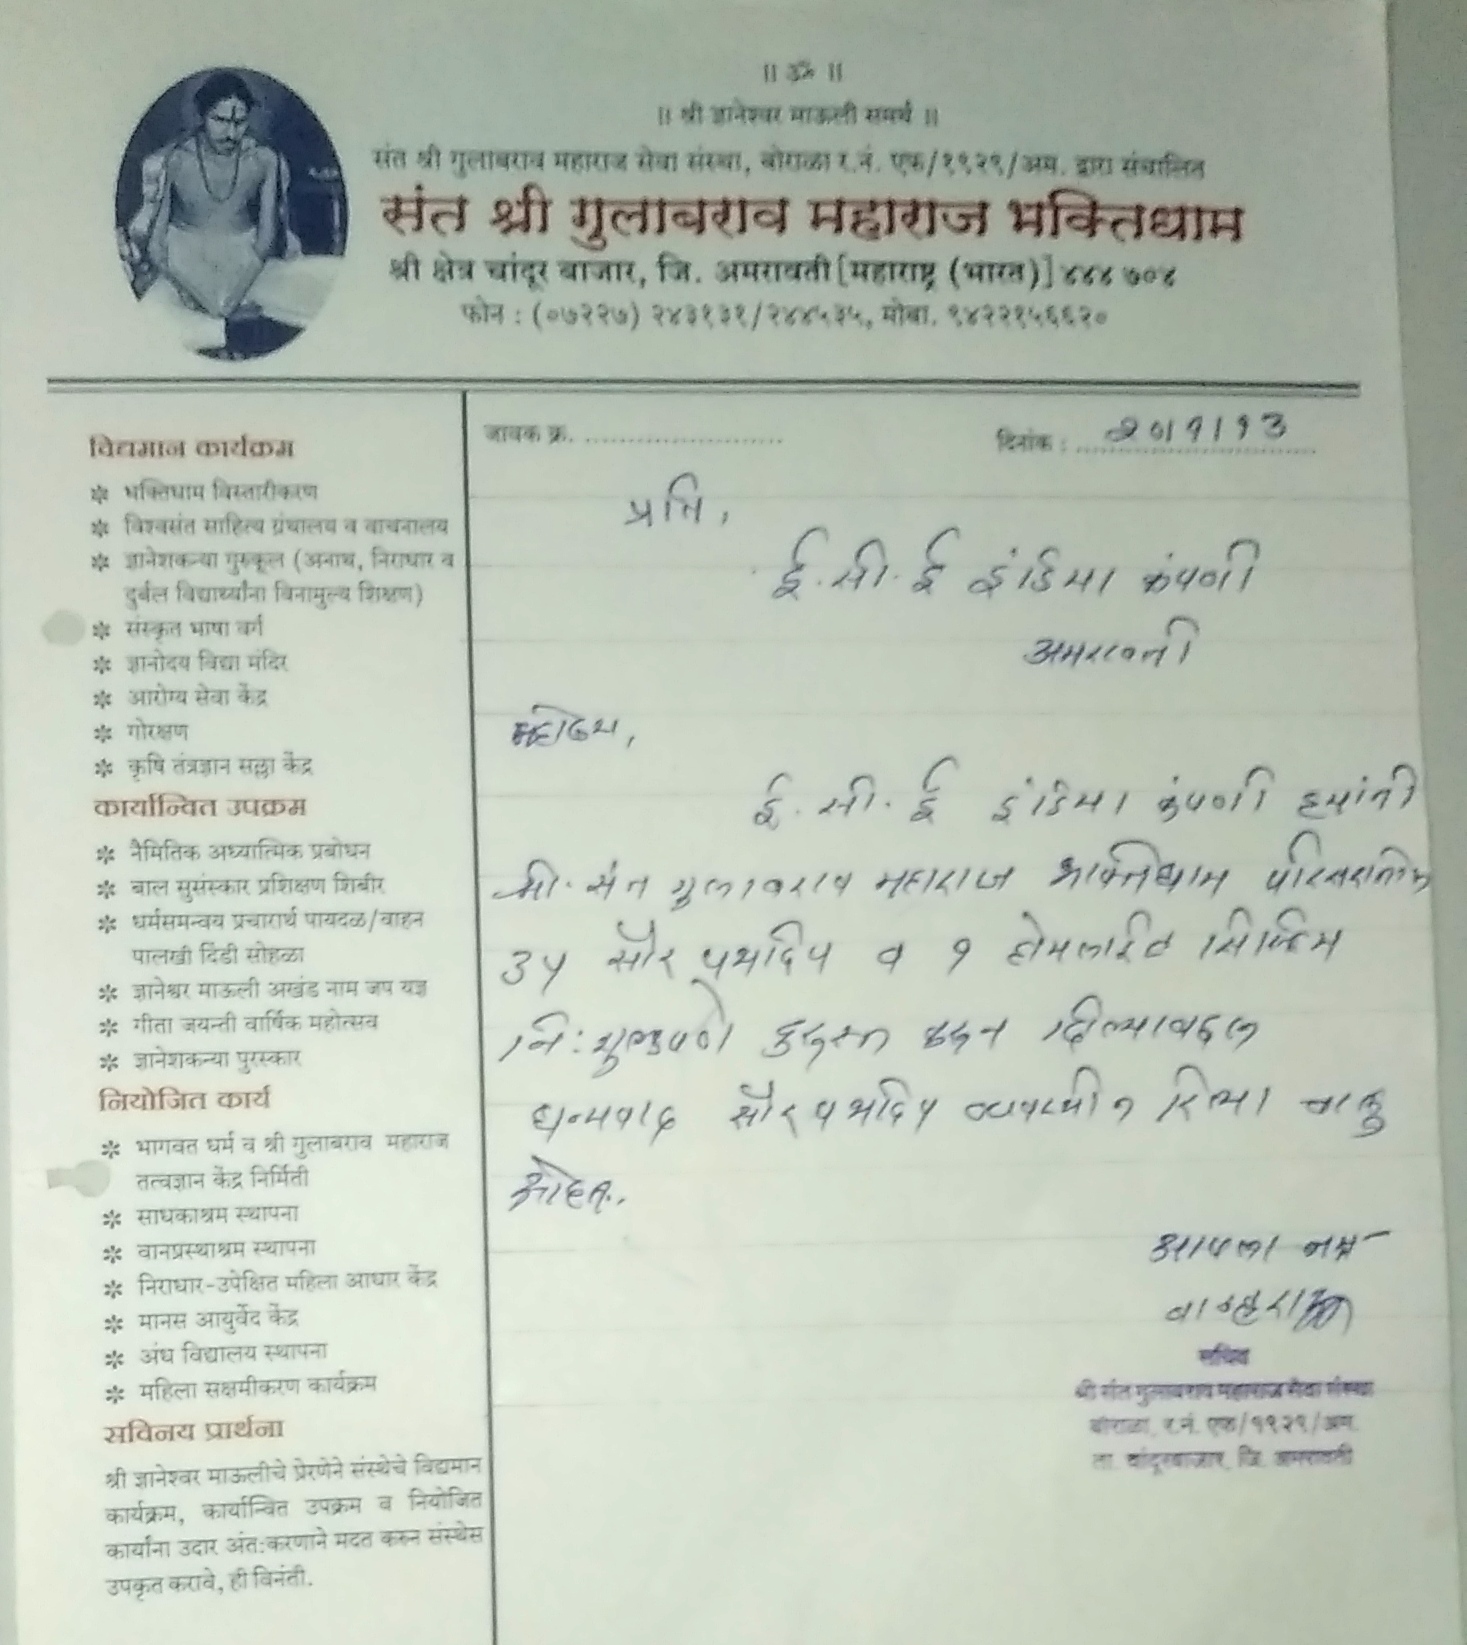 ॥ ॐ ॥
॥ श्री ज्ञानेश्वर माऊली समर्थ ॥
संत श्री गुलाबराव महाराज सेवा संस्था, बोराळा र.नं. एफ/१९२९/अम. द्वारा संचालित
संत श्री गुलाबराव महाराज भक्तिधाम
श्री क्षेत्र चांदूर बाजार, जि. अमरावती [महाराष्ट्र (भारत)] ४४४ ७०४
फोन : (०७२२७) २४३१३१/२४४५३५, मोबा. ९४२२१५६६२०
जावक क्र. ........................
दिनांक : २०।१।१३
विद्यमान कार्यक्रम
✻ भक्तिधाम विस्तारीकरण
✻ विश्वसंत साहित्य ग्रंथालय व वाचनालय
✻ ज्ञानेशकन्या गुरुकूल (अनाथ, निराधार व
दुर्बल विद्यार्थ्यांना विनामुल्य शिक्षण)
✻ संस्कृत भाषा वर्ग
✻ ज्ञानोदय विद्या मंदिर
✻ आरोग्य सेवा केंद्र
✻ गोरक्षण
✻ कृषि तंत्रज्ञान सल्ला केंद्र
कार्यान्वित उपक्रम
✻ नैमितिक अध्यात्मिक प्रबोधन
✻ बाल सुसंस्कार प्रशिक्षण शिबीर
✻ धर्मसमन्वय प्रचारार्थ पायदळ/वाहन
पालखी दिंडी सोहळा
✻ ज्ञानेश्वर माऊली अखंड नाम जप यज्ञ
✻ गीता जयन्ती वार्षिक महोत्सव
✻ ज्ञानेशकन्या पुरस्कार
नियोजित कार्य
✻ भागवत धर्म व श्री गुलाबराव महाराज
तत्वज्ञान केंद्र निर्मिती
✻ साधकाश्रम स्थापना
✻ वानप्रस्थाश्रम स्थापना
✻ निराधार-उपेक्षित महिला आधार केंद्र
✻ मानस आयुर्वेद केंद्र
✻ अंध विद्यालय स्थापना
✻ महिला सक्षमीकरण कार्यक्रम
सविनय प्रार्थना
श्री ज्ञानेश्वर माऊलीचे प्रेरणेने संस्थेचे विद्यमान
कार्यक्रम, कार्यान्वित उपक्रम व नियोजित
कार्यांना उदार अंत:करणाने मदत करुन संस्थेस
उपकृत करावे, ही विनंती.
प्रति,
ई.सी.ई इंडिया कंपणी
अमरावती
महोदय,
ई.सी.ई इंडिया कंपणी ह्यांनी
श्री.संत गुलाबराव महाराज भक्तिधाम परिसरातील
३५ सौर पथदिप व १ होमलाईट सिस्टिम
नि:शुल्कपणे दुरुस्त करुन दिल्याबद्दल
धन्यवाद सौर पथदिप व्यवस्थीत रित्या चालु
आहेत.
आपला नम्र
सचिव
श्री संत गुलाबराव महाराज सेवा संस्था
बोराळा, र.नं. एफ/१९२९/अम.
ता. चांदूरबाजार, जि. अमरावती